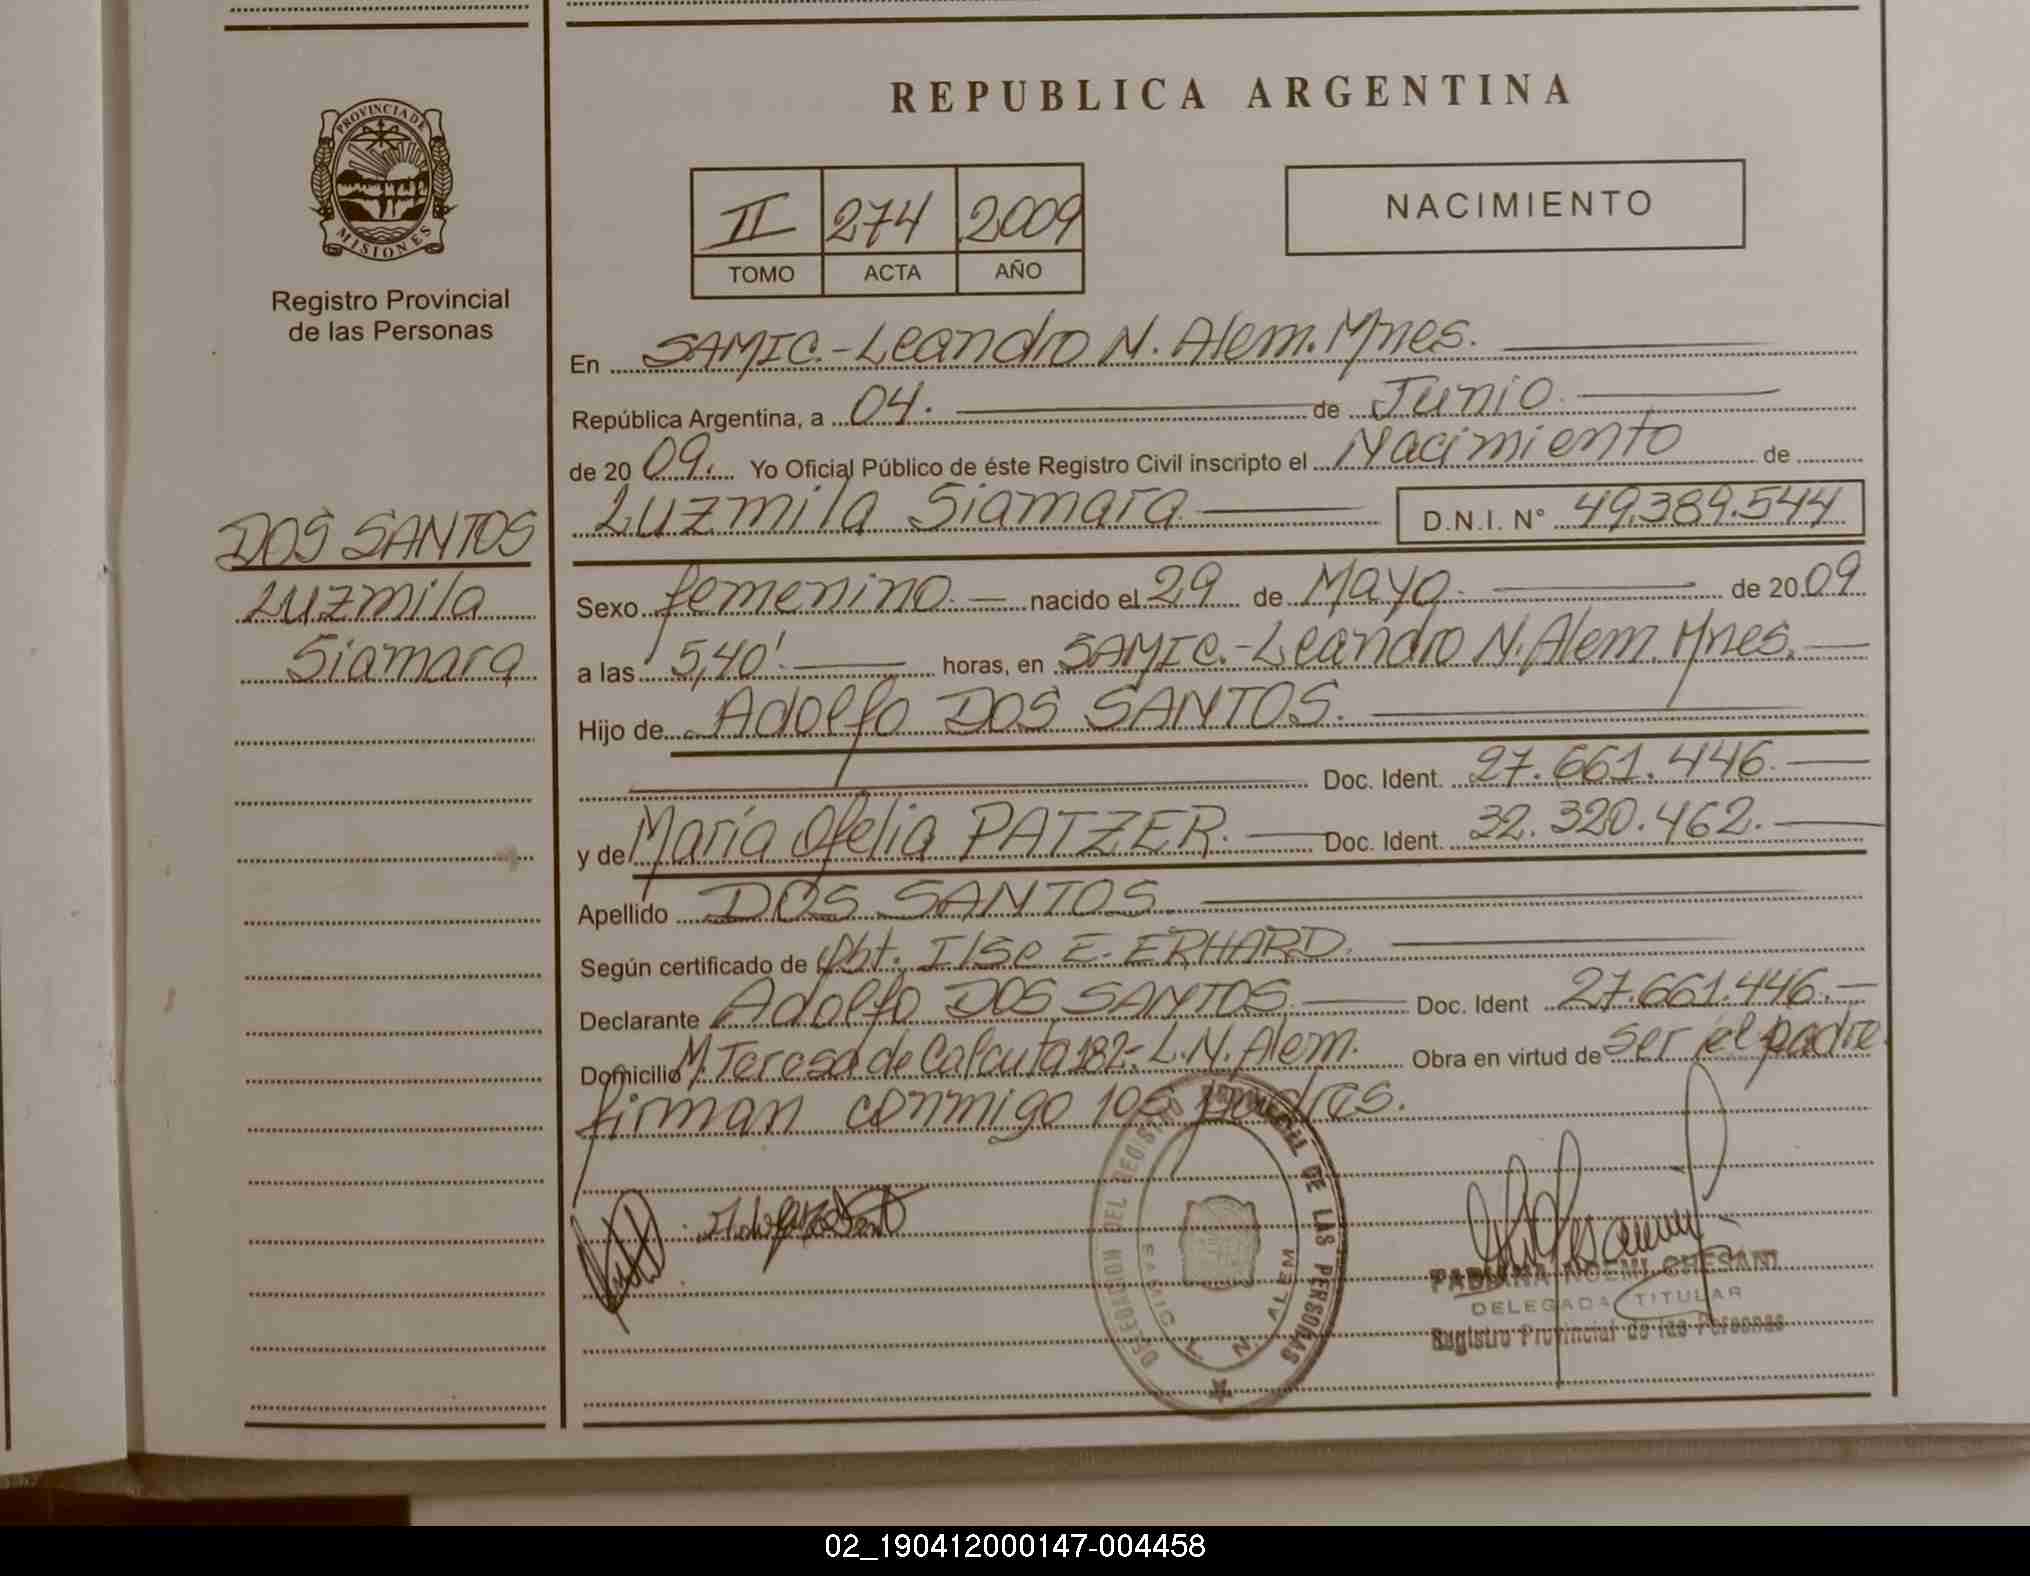 PROVINCIA DE
MISIONES
Registro Provincial
de las Personas
DOS SANTOS
Luzmila
Siamara
REPUBLICA ARGENTINA
II 274 2009
TOMO ACTA AÑO
NACIMIENTO
En SAMIC.-Leandro N. Alem. Mnes.
República Argentina, a 04. de Junio.
de 2009. Yo Oficial Público de éste Registro Civil inscripto el Nacimiento de
Luzmila Siamara D.N.I. N° 49.389.544
Sexo femenino. nacido el 29 de Mayo. de 2009
a las 5,40'. horas, en SAMIC.-Leandro N. Alem. Mnes.
Hijo de Adolfo DOS SANTOS.
Doc. Ident. 27.661.446.
y de María Ofelia PATZER. Doc. Ident. 32.320.462.
Apellido DOS SANTOS.
Según certificado de Obt. Ilse E. ERHARD.
Declarante Adolfo DOS SANTOS. Doc. Ident 27.661.446.
Domicilio M. Teresa de Calcuta 182.- L.N. Alem. Obra en virtud de ser el padre.
firman conmigo los padres.
DELEGACION DEL REGISTRO PROVINCIAL DE LAS PERSONAS
SAMIC L. N. ALEM
FABIANA NOEMI CHESANI
DELEGADA TITULAR
Registro Provincial de las Personas
02_190412000147-004458